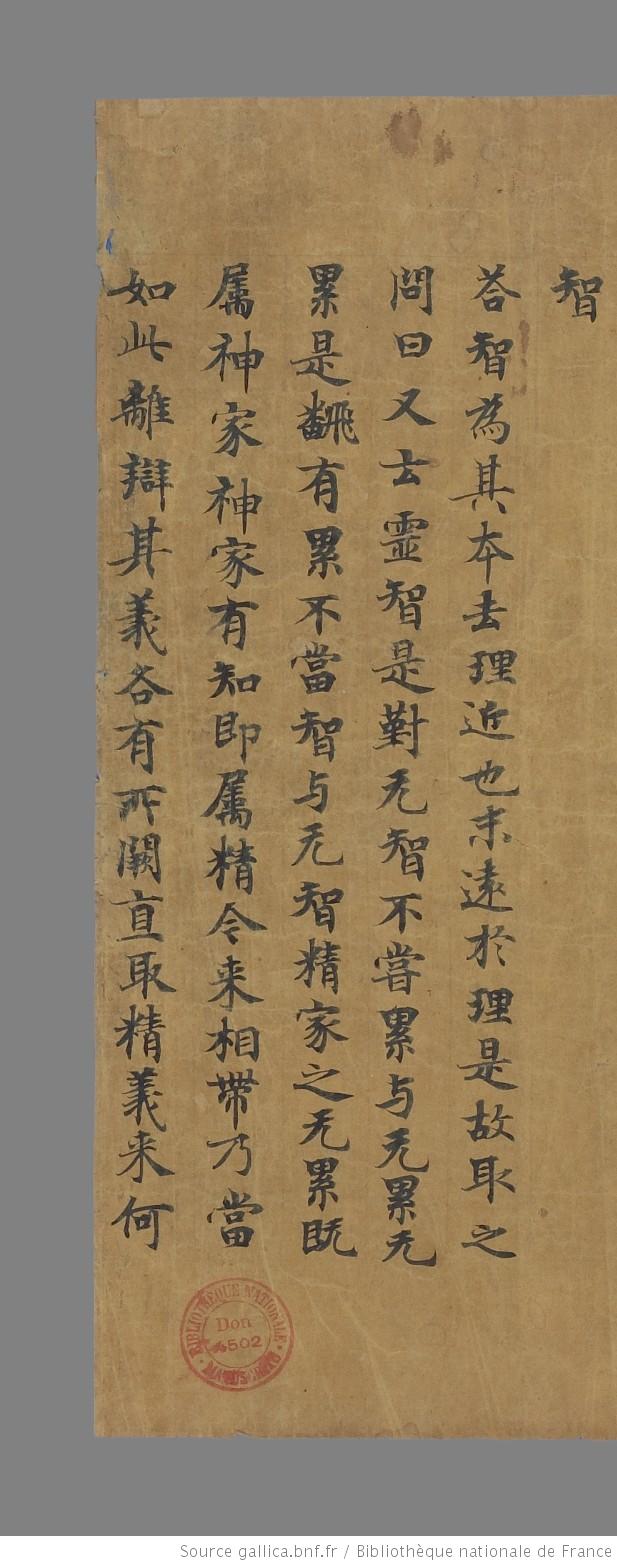 智
荅智為其本去理近也末遠於理是故取之
問曰又云靈智是對无智不嘗累与无累无
累是翻有累不當智与无智精家之无累既
属神家神家有知即属精令来相帶乃當
如此離辯其義各有所闕直取精義来何
BIBLIOTHÈQUE NATIONALE
Don
4502
Source gallica.bnf.fr / Bibliothèque nationale de France